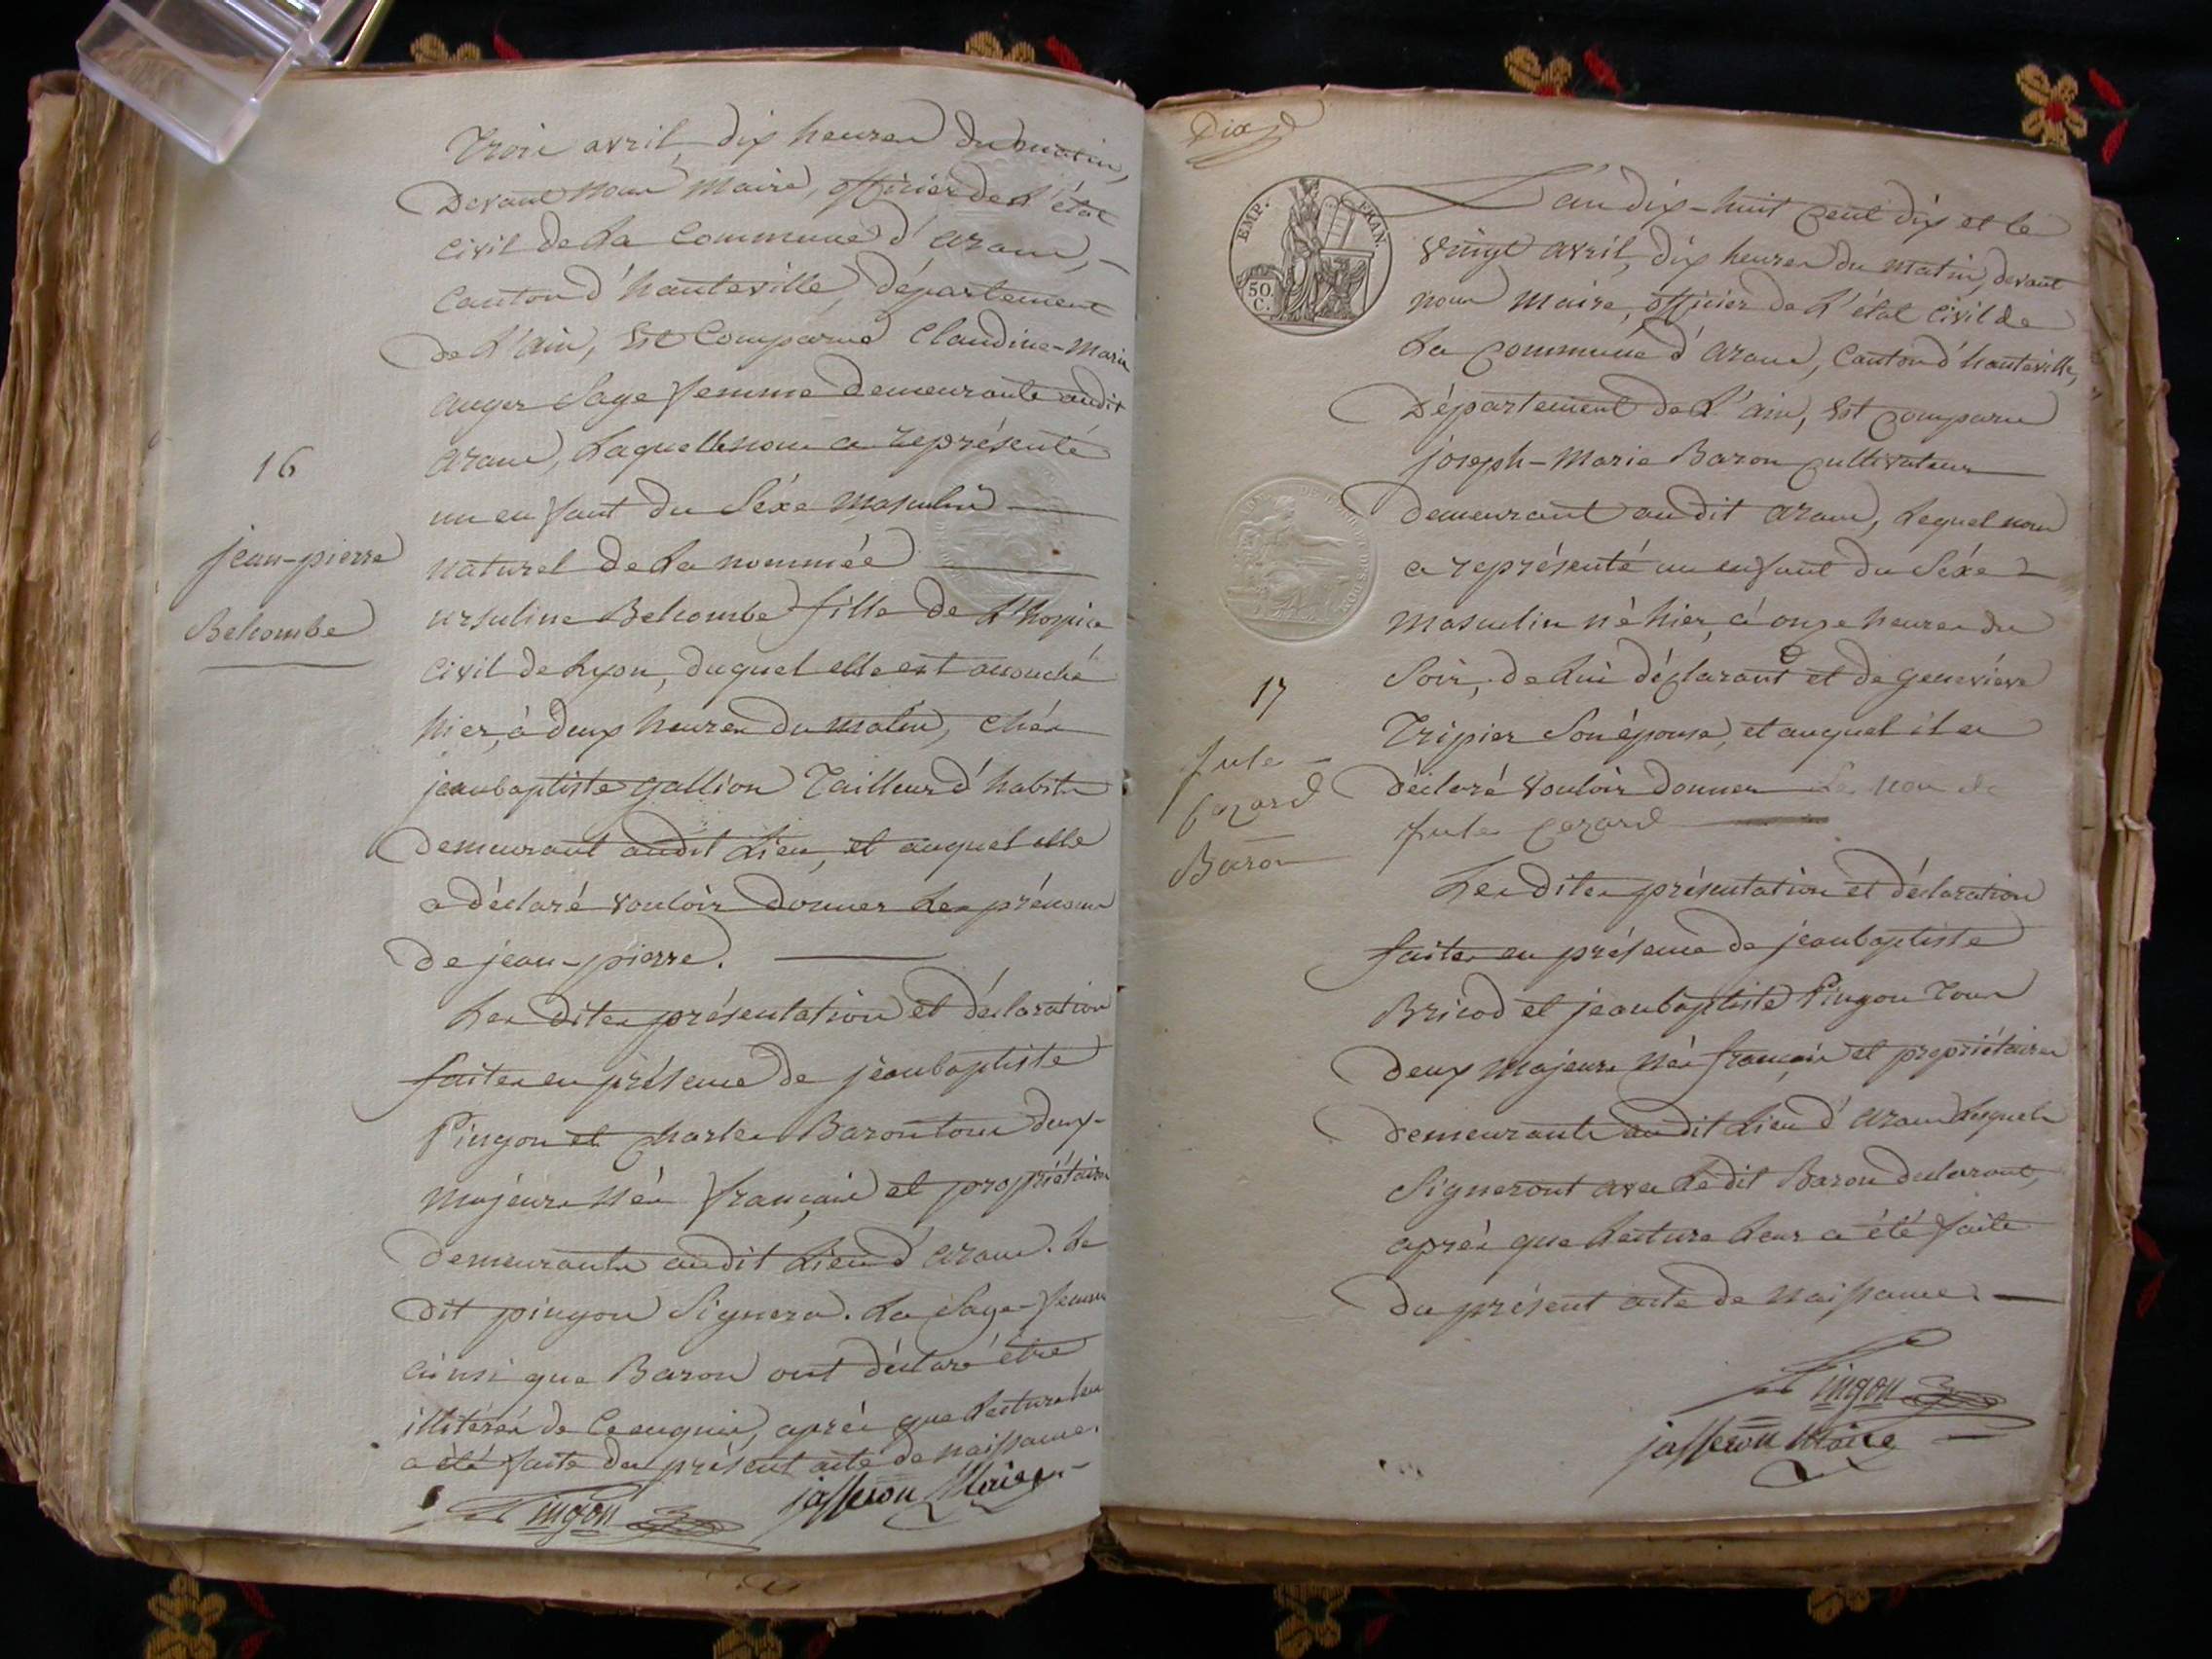 Trois avril, dix heures du matin,
Devant nous maire, officier de l'état
civil de la Commune d'aranc,
Canton d'hauteville, département
de l'ain, Est Comparue Claudine-Marie
auger Sage femme demeurante audit
aranc, Laquelle nous a représenté
un enfant du Séxe masculin
naturel de la nommée
ursuline Belcombe fille de L'hospice
civil de Lyon, duquel elle est accouché
hier, à deux heures du matin, chés
jeanbaptiste gallion Tailleur d'habits
demeurant audit Lieu, et auquel elle
a déclaré vouloir donner Les prénoms
de jean-pierre.
Les dites présentation et déclaration
faites en présence de jeanbaptiste
Pingon et charles Baron tous deux
majeurs nés français et propriétaires
demeurants audit Lieu d'aranc. Le
dit pingon Signera. La Sage-femme
ainsi que Baron ont déclaré être
illitérés de Ce enquis, après que Lecture leur
a été faite du présent acte de naissance.
Pingon jasseron Maire
16
jean-pierre
Belcombe
Dix
EMP. FRAN.
50 C.
L'an dix-huit cent dix et le
vingt avril, dix heures du matin, devant
nous maire, officier de L'état civil de
La commune d'aranc, Canton d'hauteville,
Département de L'ain, Est comparu
joseph-Marie Baron cultivateur
demeurant audit aranc, Lequel nous
a représenté un enfant du Séxe
masculin né hier, à onze heures du
Soir, de Lui déclarant et de geneviève
Tripier Son épouse, et auquel il a
déclaré vouloir donner Le nom de
jule cezard
Les dites présentation et déclaration
faites en présence de jeanbaptiste
Bricod et jeanbaptiste Pingon Tous
deux majeurs nés français et propriétaires
demeurants audit Lieu d'aranc Lesquels
Signeront avec Ledit Baron declarant,
après que Lecture Leur a été faite
du présent acte de naissance.
Pingon
jasseron Maire
17
jule
cezard
Baron